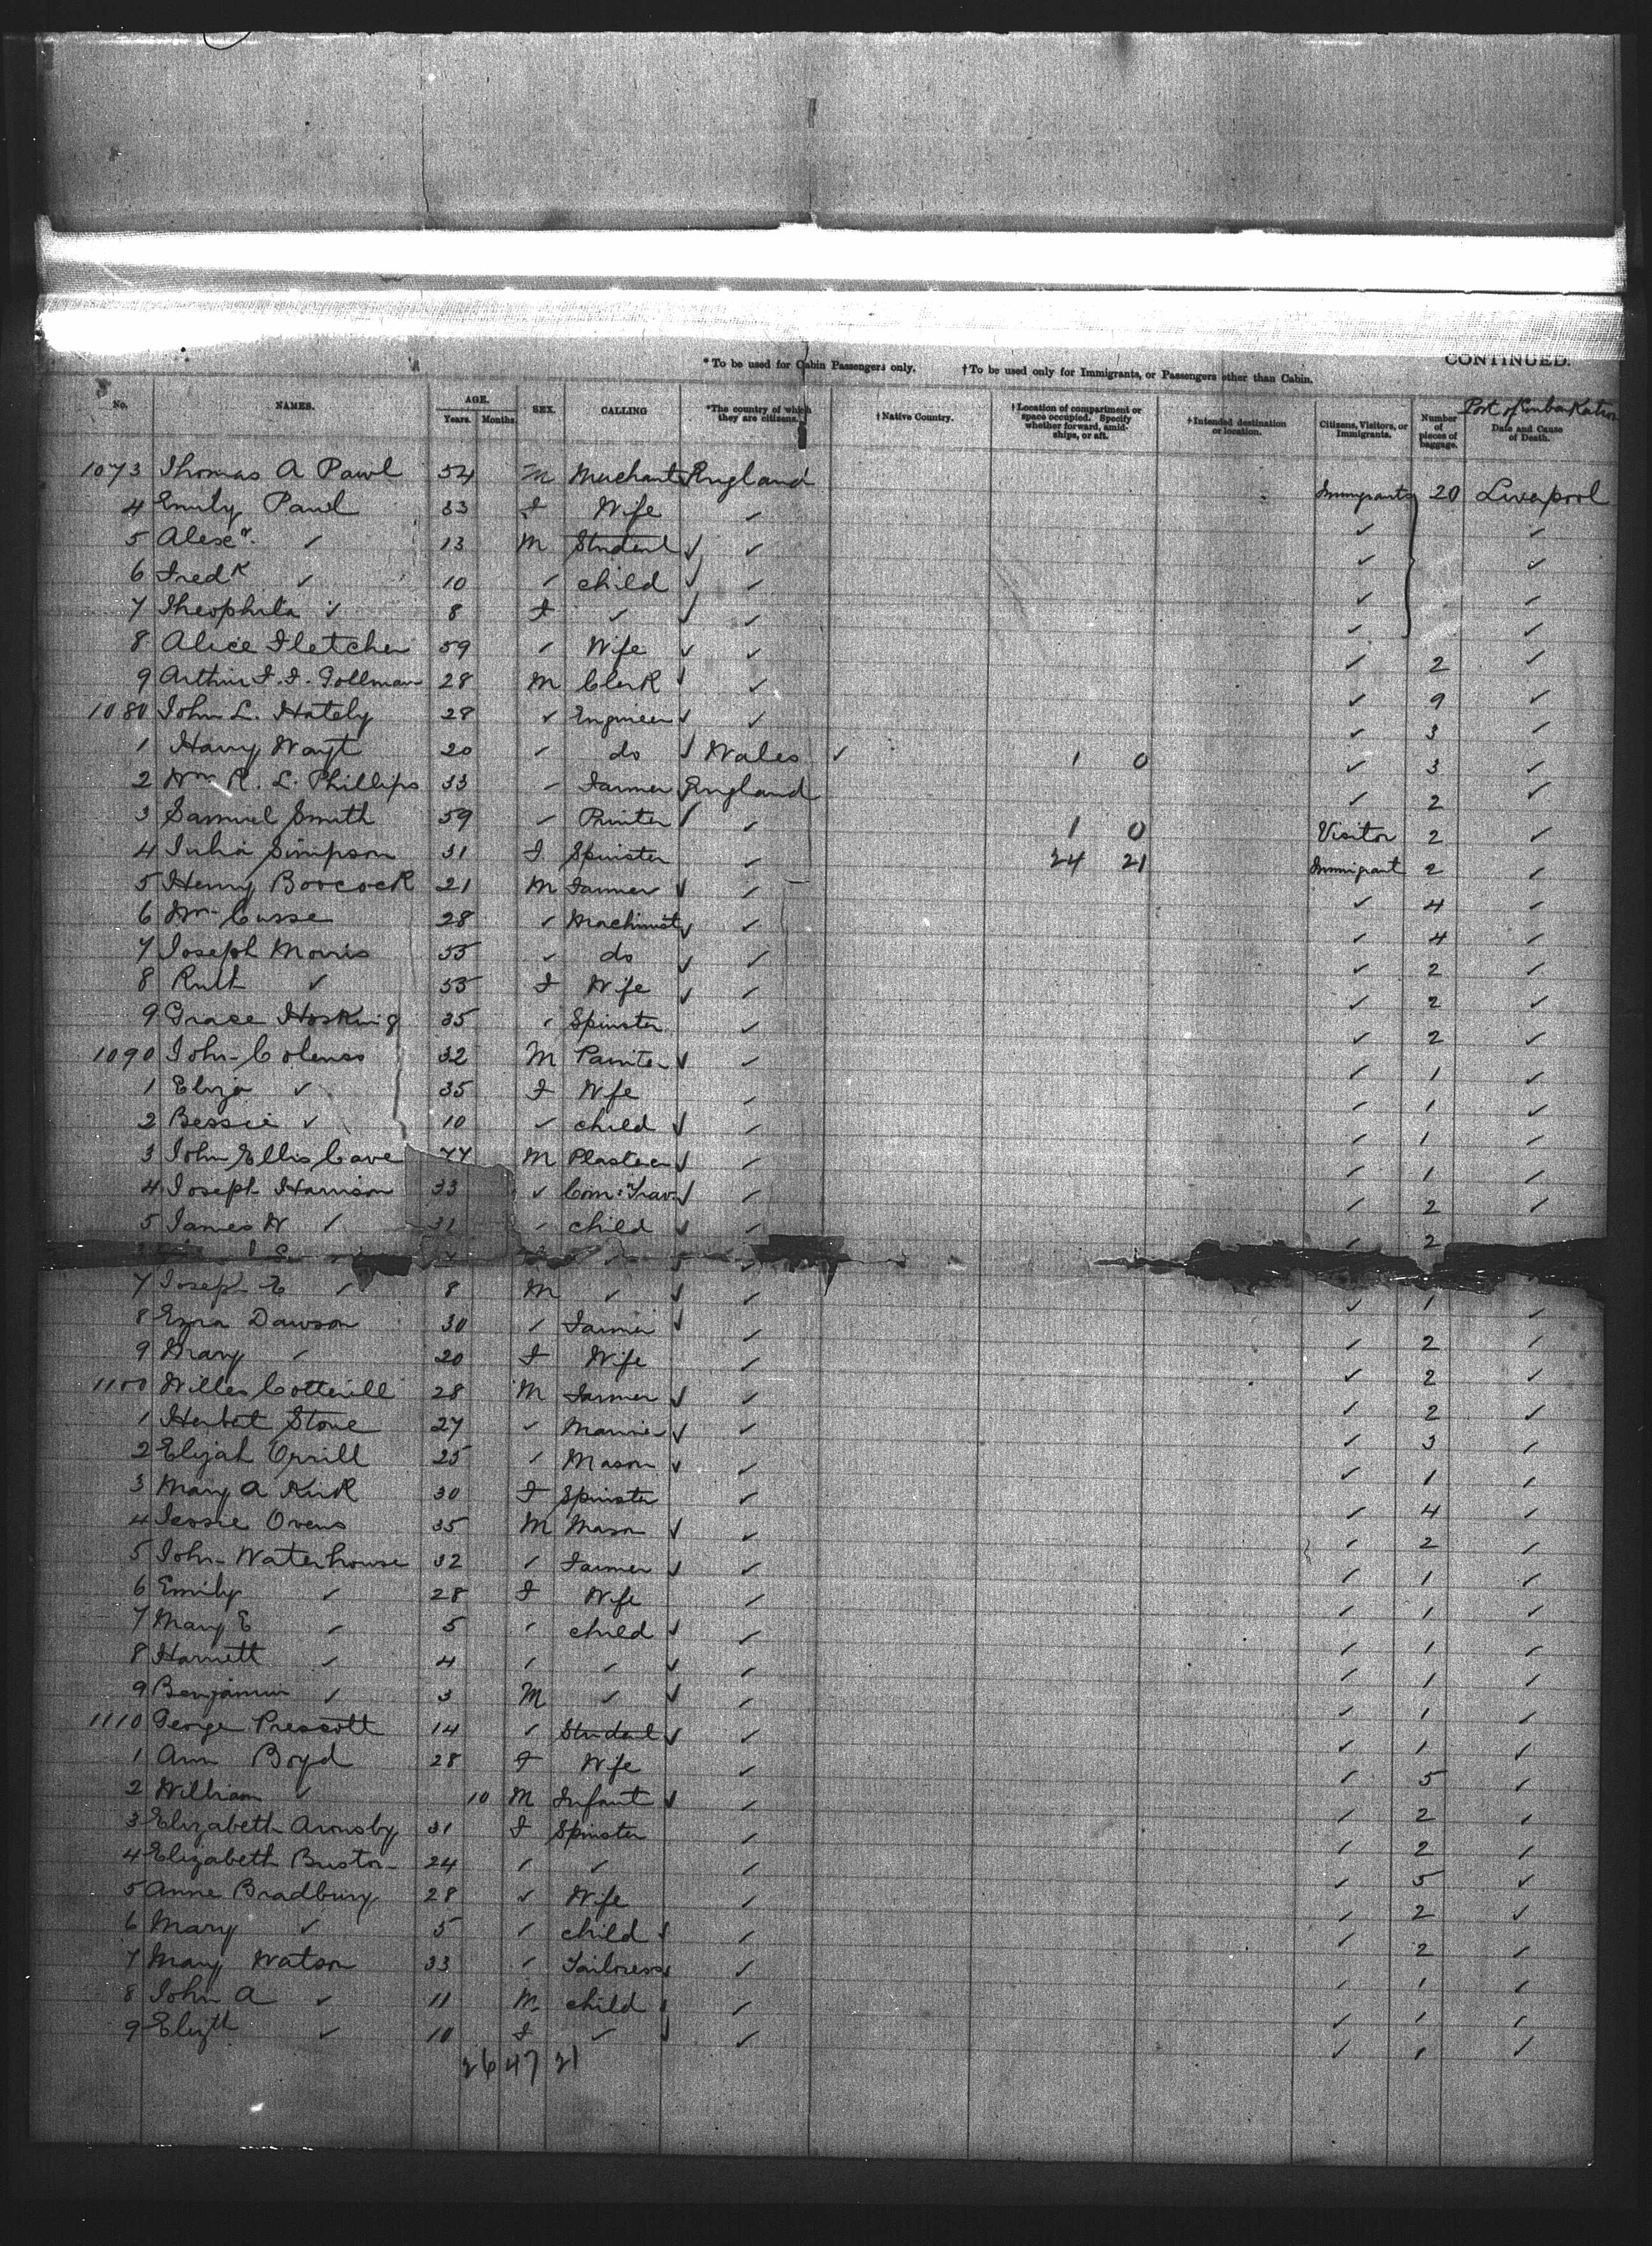 CONTINUED.
*To be used for Cabin Passengers only. †To be used only for Immigrants, or Passengers other than Cabin.
No. NAMES. AGE. Years. Months. SEX. CALLING *The country of which they are citizens. †Native Country. †Location of compartment or space occupied. Specify whether forward, amidships, or aft. †Intended destination or location. Citizens, Visitors, or Immigrants. Number of pieces of baggage. Port of Embarkation Date and Cause of Death.
1073 Thomas A Pawl 54 M Merchant England Immigrants 20 Liverpool
4 Emily Pawl 33 F Wife ✓ ✓ ✓
5 Alexr. ✓ 13 M Student ✓ ✓ ✓ ✓
6 Fredk ✓ 10 ✓ child ✓ ✓ ✓ ✓
7 Theophila ✓ 8 F ✓ ✓ ✓ ✓ ✓
8 Alice Fletcher 59 ✓ Wife ✓ ✓ ✓ 2 ✓
9 Arthur F. F. Gollman 28 M Clerk ✓ ✓ ✓ 9 ✓
1080 John L. Hately 28 ✓ Engineer ✓ ✓ ✓ 3 ✓
1 Harry Wayt 20 ✓ do ✓ Wales ✓ 1 0 ✓ 3 ✓
2 Wm R. L. Phillips 33 ✓ Farmer England ✓ 2 ✓
3 Samuel Smith 59 ✓ Printer ✓ ✓ 1 0 Visitor 2 ✓
4 Julia Simpson 31 F Spinster ✓ 24 21 Immigrant 2 ✓
5 Henry Boocock 21 M Farmer ✓ ✓ ✓ 4 ✓
6 Wm Cusse 28 ✓ Machinist ✓ ✓ ✓ 4 ✓
7 Joseph Morris 55 ✓ do ✓ ✓ ✓ 2 ✓
8 Ruth ✓ 55 F Wife ✓ ✓ ✓ 2 ✓
9 Grace Hosking 35 ✓ Spinster ✓ ✓ 2 ✓
1090 John Colenso 32 M Painter ✓ ✓ ✓ 1 ✓
1 Eliza ✓ 35 F Wife ✓ ✓ 1 ✓
2 Bessie ✓ 10 ✓ child ✓ ✓ ✓ 1 ✓
3 John Ellis Cave 44 M Plasterer ✓ ✓ ✓ 1 ✓
4 Joseph Harrison 33 ✓ Com: Trav. ✓ ✓ ✓ 2 ✓
5 James W ✓ 31 ✓ child ✓ ✓ ✓ 2
7 Joseph E ✓ 8 M ✓ ✓ ✓ ✓ 1 ✓
8 Ezra Dawson 30 ✓ Farmer ✓ ✓ ✓ 2 ✓
9 Mary ✓ 20 F Wife ✓ ✓ 2 ✓
1100 Willes Cotterill 28 M Farmer ✓ ✓ ✓ 2 ✓
1 Herbert Stone 27 ✓ Marine ✓ ✓ ✓ 3 ✓
2 Elijah Orrill 25 ✓ Mason ✓ ✓ ✓ 1 ✓
3 Mary A Kirk 30 F Spinster ✓ ✓ 4 ✓
4 Jessie Ovens 35 M Mason ✓ ✓ ✓ 2 ✓
5 John Waterhouse 32 ✓ Farmer ✓ ✓ ✓ 1 ✓
6 Emily ✓ 28 F Wife ✓ ✓ 1 ✓
7 Mary E ✓ 5 ✓ child ✓ ✓ ✓ 1 ✓
8 Harriett ✓ 4 ✓ ✓ ✓ ✓ ✓ 1 ✓
9 Benjamin ✓ 3 M ✓ ✓ ✓ ✓ 1 ✓
1110 George Prescott 14 ✓ Student ✓ ✓ ✓ 1 ✓
1 Ann Boyd 28 F Wife ✓ ✓ 5 ✓
2 William ✓ 10 M Infant ✓ ✓ ✓ 2 ✓
3 Elizabeth Armsby 31 F Spinster ✓ ✓ 2 ✓
4 Elizabeth Buston 24 ✓ ✓ ✓ ✓ 5 ✓
5 Anne Bradbury 28 ✓ Wife ✓ ✓ 2 ✓
6 Mary ✓ 5 ✓ child ✓ ✓ ✓ 2 ✓
7 Mary Watson 33 ✓ Tailoress ✓ ✓ 1 ✓
8 John A ✓ 11 M child ✓ ✓ ✓ 1 ✓
9 Elizth ✓ 10 F ✓ ✓ ✓ ✓ 1 ✓
26 47 21